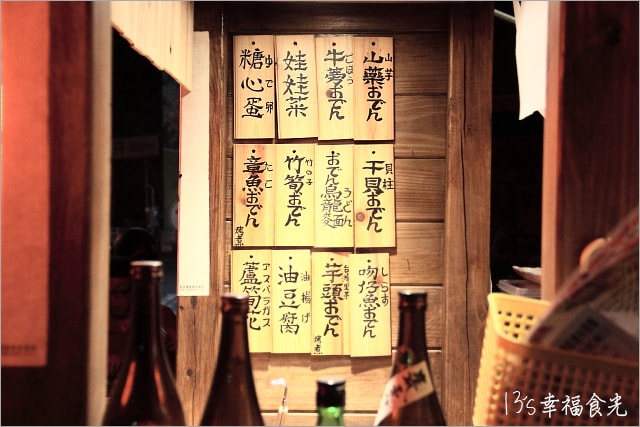 山藥おでん
山芋
牛蒡おでん
ごぼう
娃娃菜
糖心蛋
ゆで卵
干貝おでん
貝柱
おでん烏龍麵
うどん
竹筍おでん
竹の子
章魚おでん
たこ
吻仔魚おでん
しらす
芋頭おでん
油豆腐
油揚げ
蘆筍花
アスパラガス
13's幸福食光